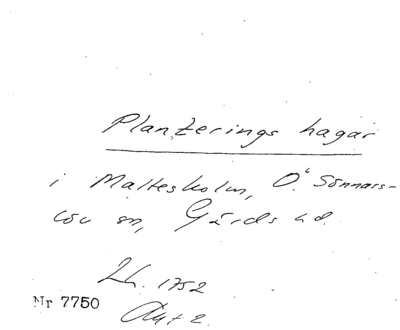 Planterings hagar
i Maltesholm, Ö. Sönnars-
löv sn, Gärds hd.
Lh. 1752
Nr 7750